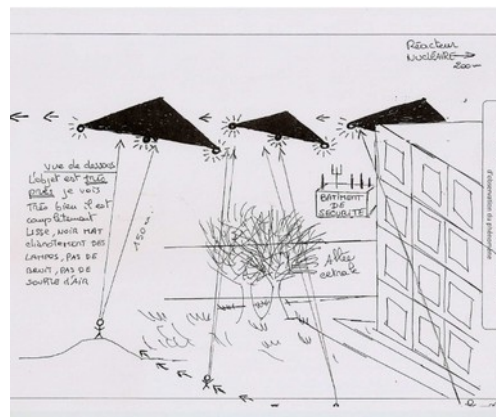 Réacteur
NUCLÉAIRE
200m
vue de dessous
L'objet est très
près je vois
Très bien il est
complètement
LISSE, NOIR MAT
clignotement DES
LAMPES, PAS DE
BRUIT, PAS DE
SOUFFLE d'AIR
150m
BÂTIMENT
DE
SÉCURITÉ
Allée
centrale
d'observation du phénomène